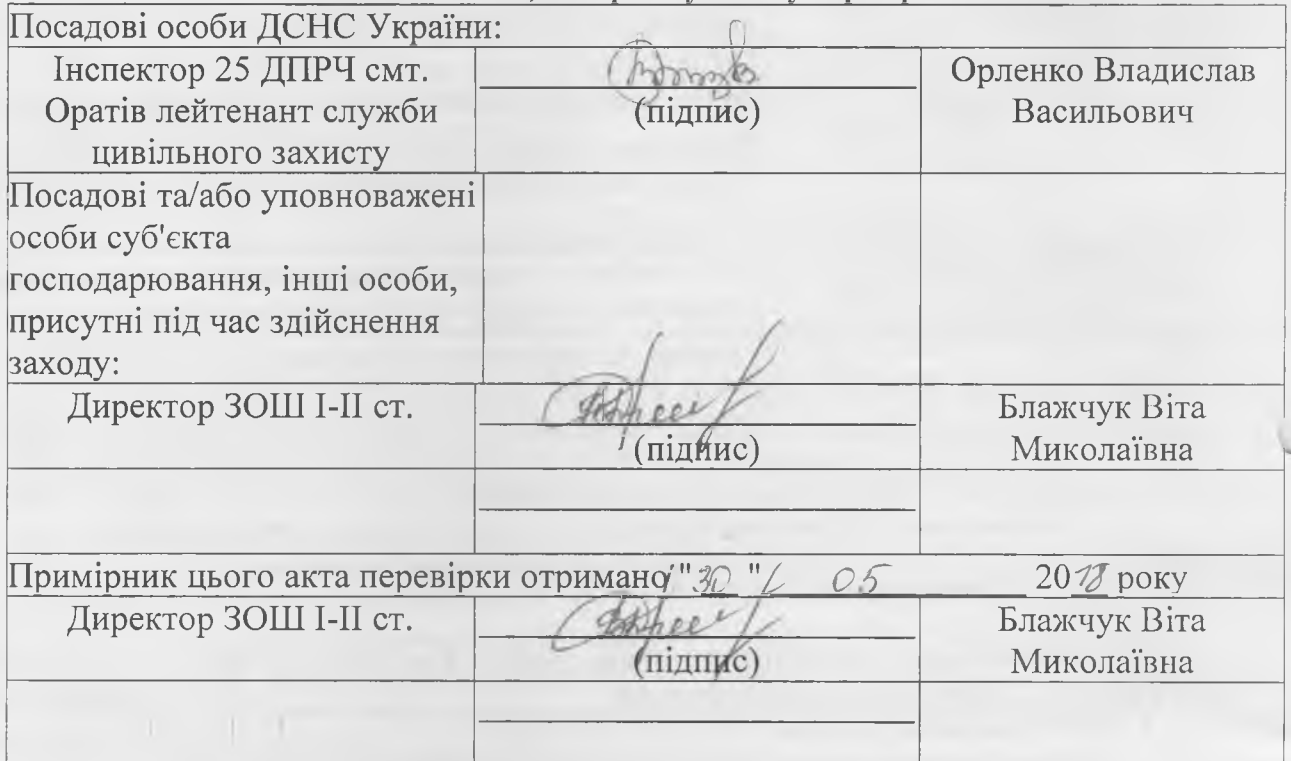 Посадові особи ДСНС України:
Інспектор 25 ДПРЧ смт.
Оратів лейтенант служби
цивільного захисту
(підпис)
Орленко Владислав
Васильович
Посадові та/або уповноважені
особи суб'єкта
господарювання, інші особи,
присутні під час здійснення
заходу:
Директор ЗОШ І-ІІ ст.
(підпис)
Блажчук Віта
Миколаївна
Примірник цього акта перевірки отримано "30" 05 2018 року
Директор ЗОШ І-ІІ ст.
(підпис)
Блажчук Віта
Миколаївна